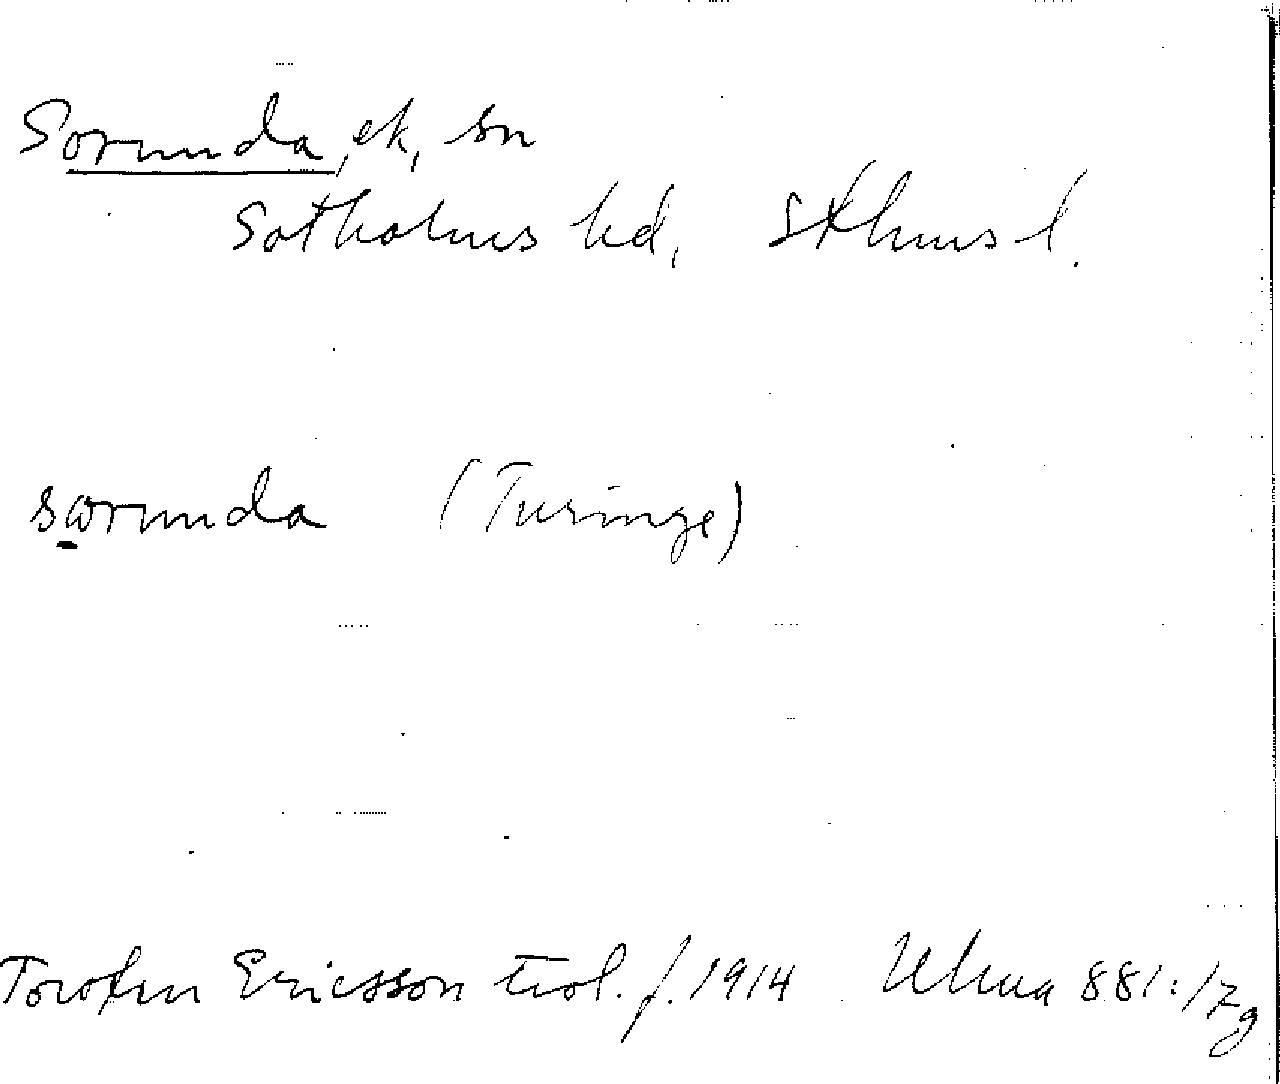 Sorunda, ek, sn
Sotholms hd, Sthlms l.
sωrunda (Turinge)
Torsten Ericsson trol. f. 1914 Ulma 881:17 g